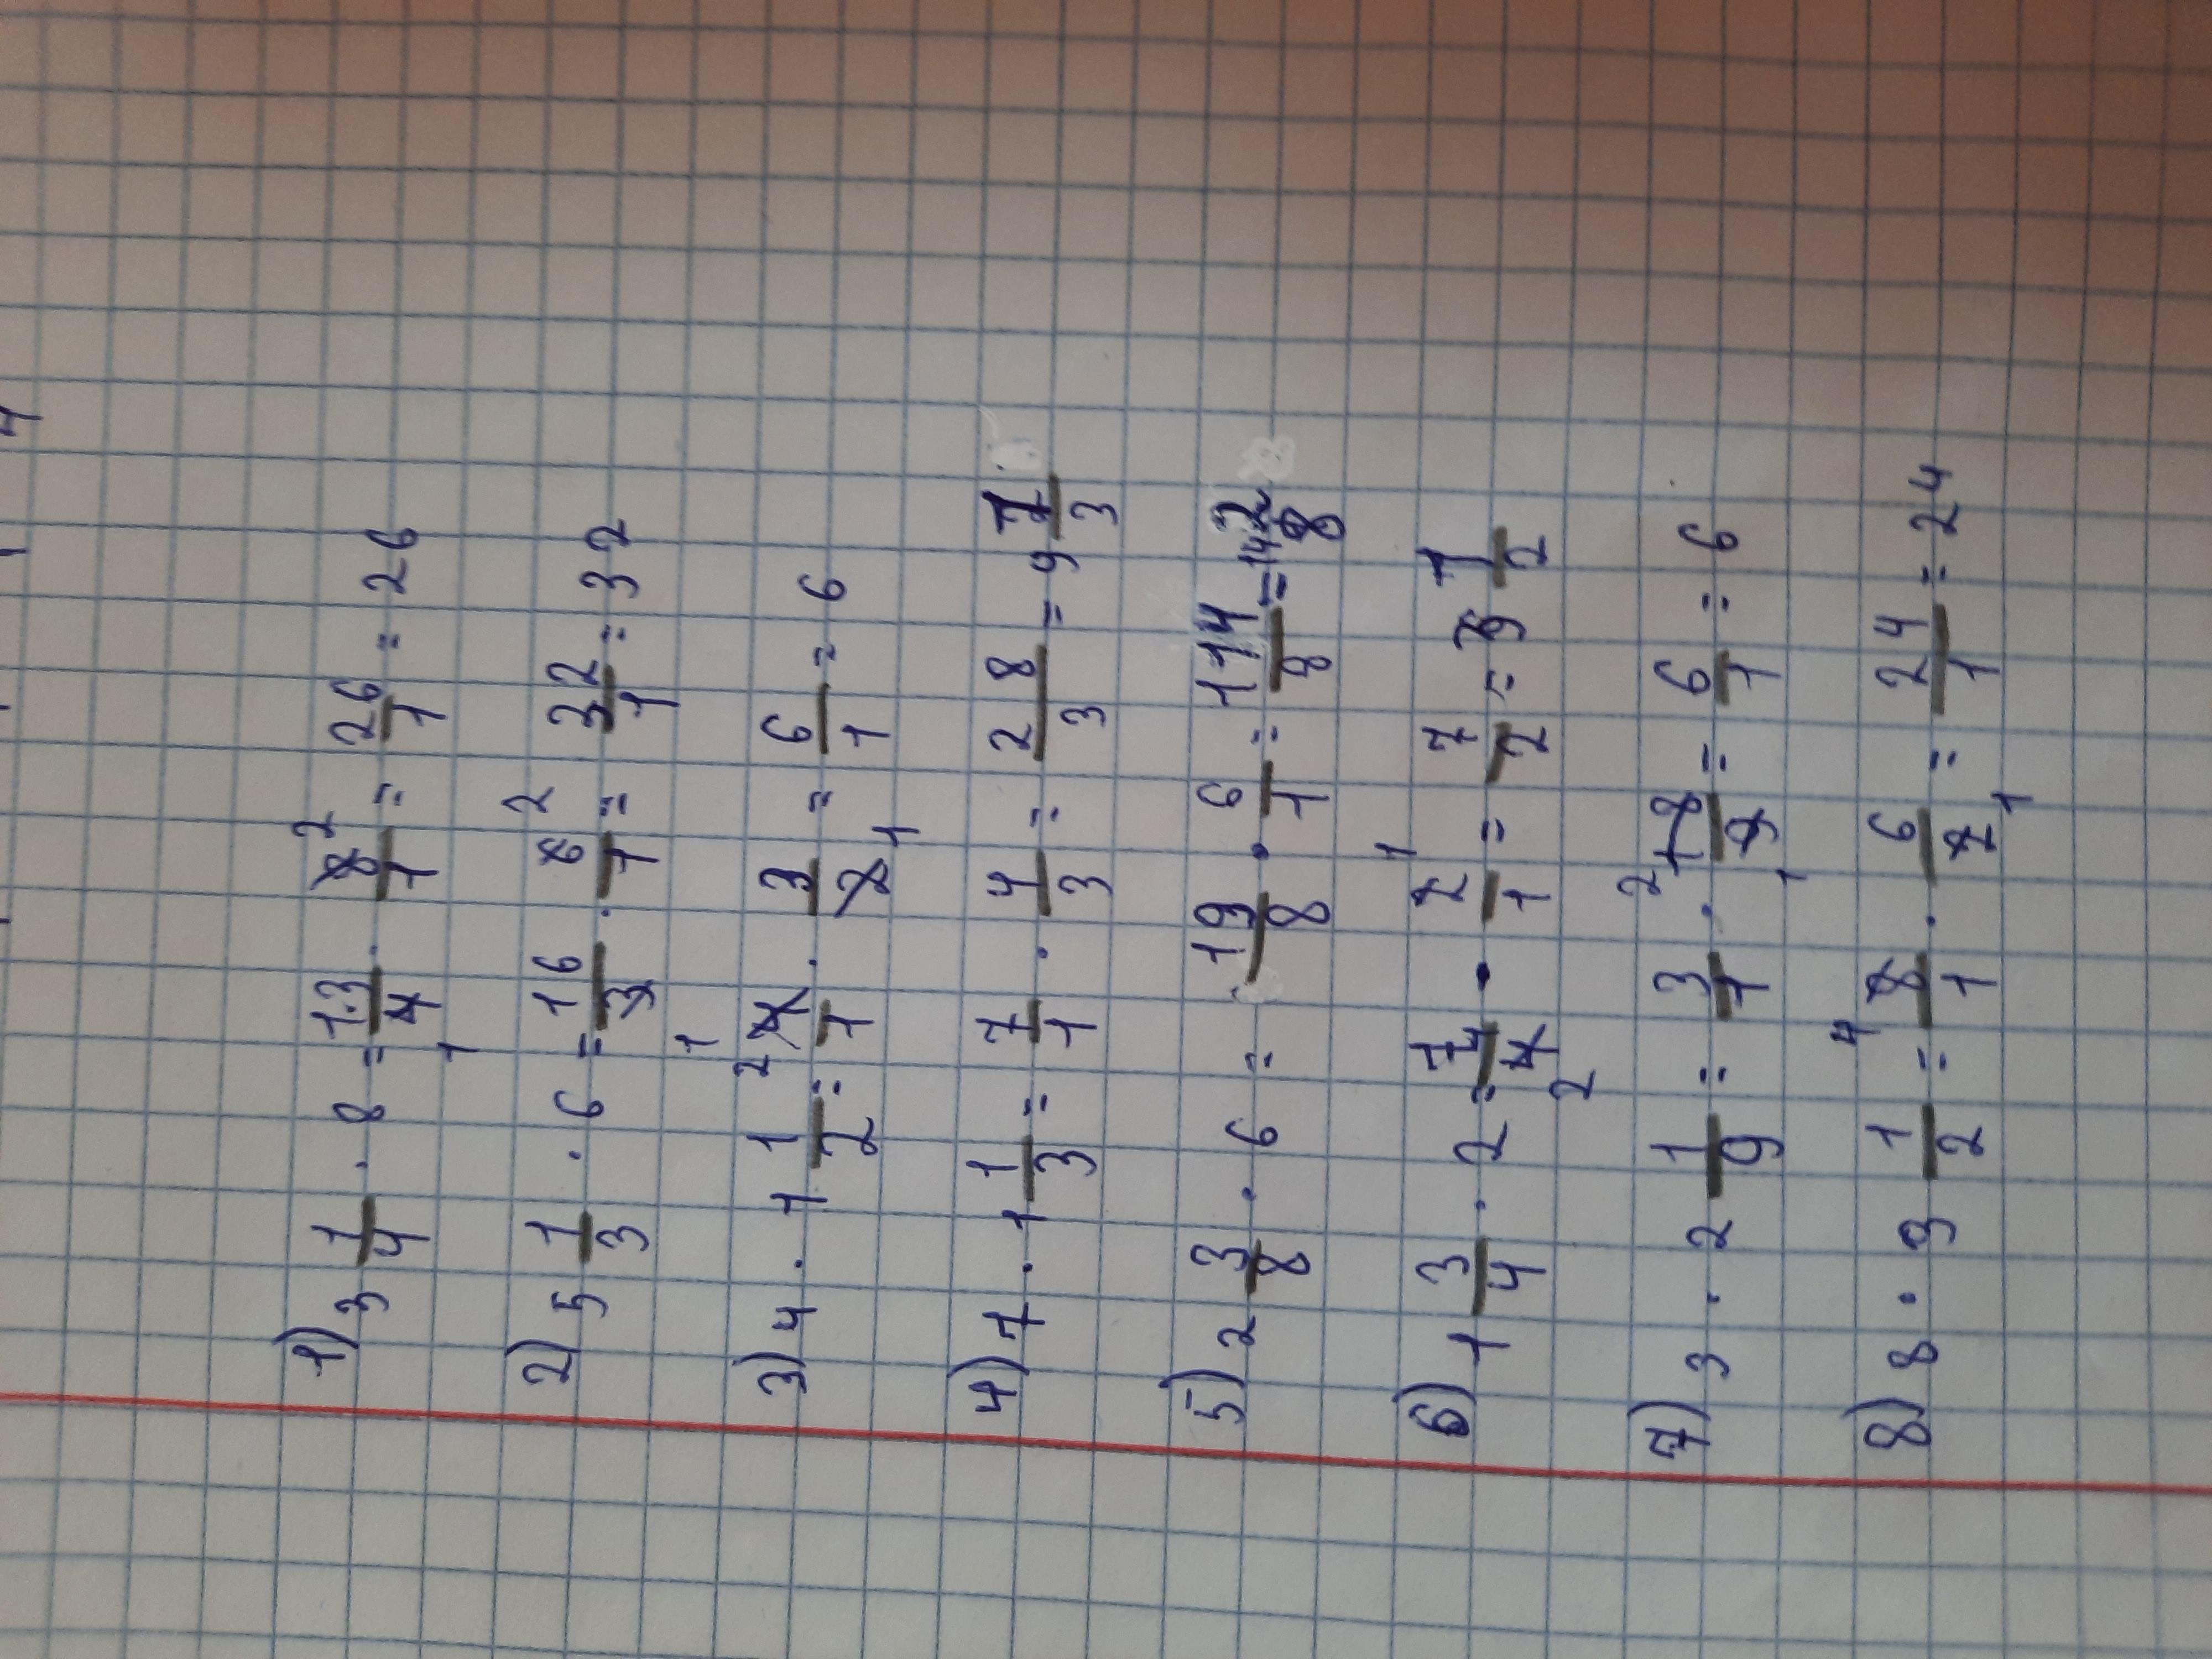 1) 3 1/4 · 8 = 13/4 · 8/1 = 26/1 = 26
2) 5 1/3 · 6 = 16/3 · 6/1 = 32/1 = 32
3) 4 · 1 1/2 = 4/1 · 3/2 = 6/1 = 6
4) 7 · 1 1/3 = 7/1 · 4/3 = 28/3 = 9 1/3
5) 2 3/8 · 6 = 19/8 · 6/1 = 114/8 = 14 2/8
6) 1 3/4 · 2 = 7/4 · 2/1 = 7/2 = 3 1/2
7) 3 · 2 1/9 = 3/1 · 18/9 = 6/1 = 6
8) 8 · 3 1/2 = 8/1 · 6/2 = 24/1 = 24